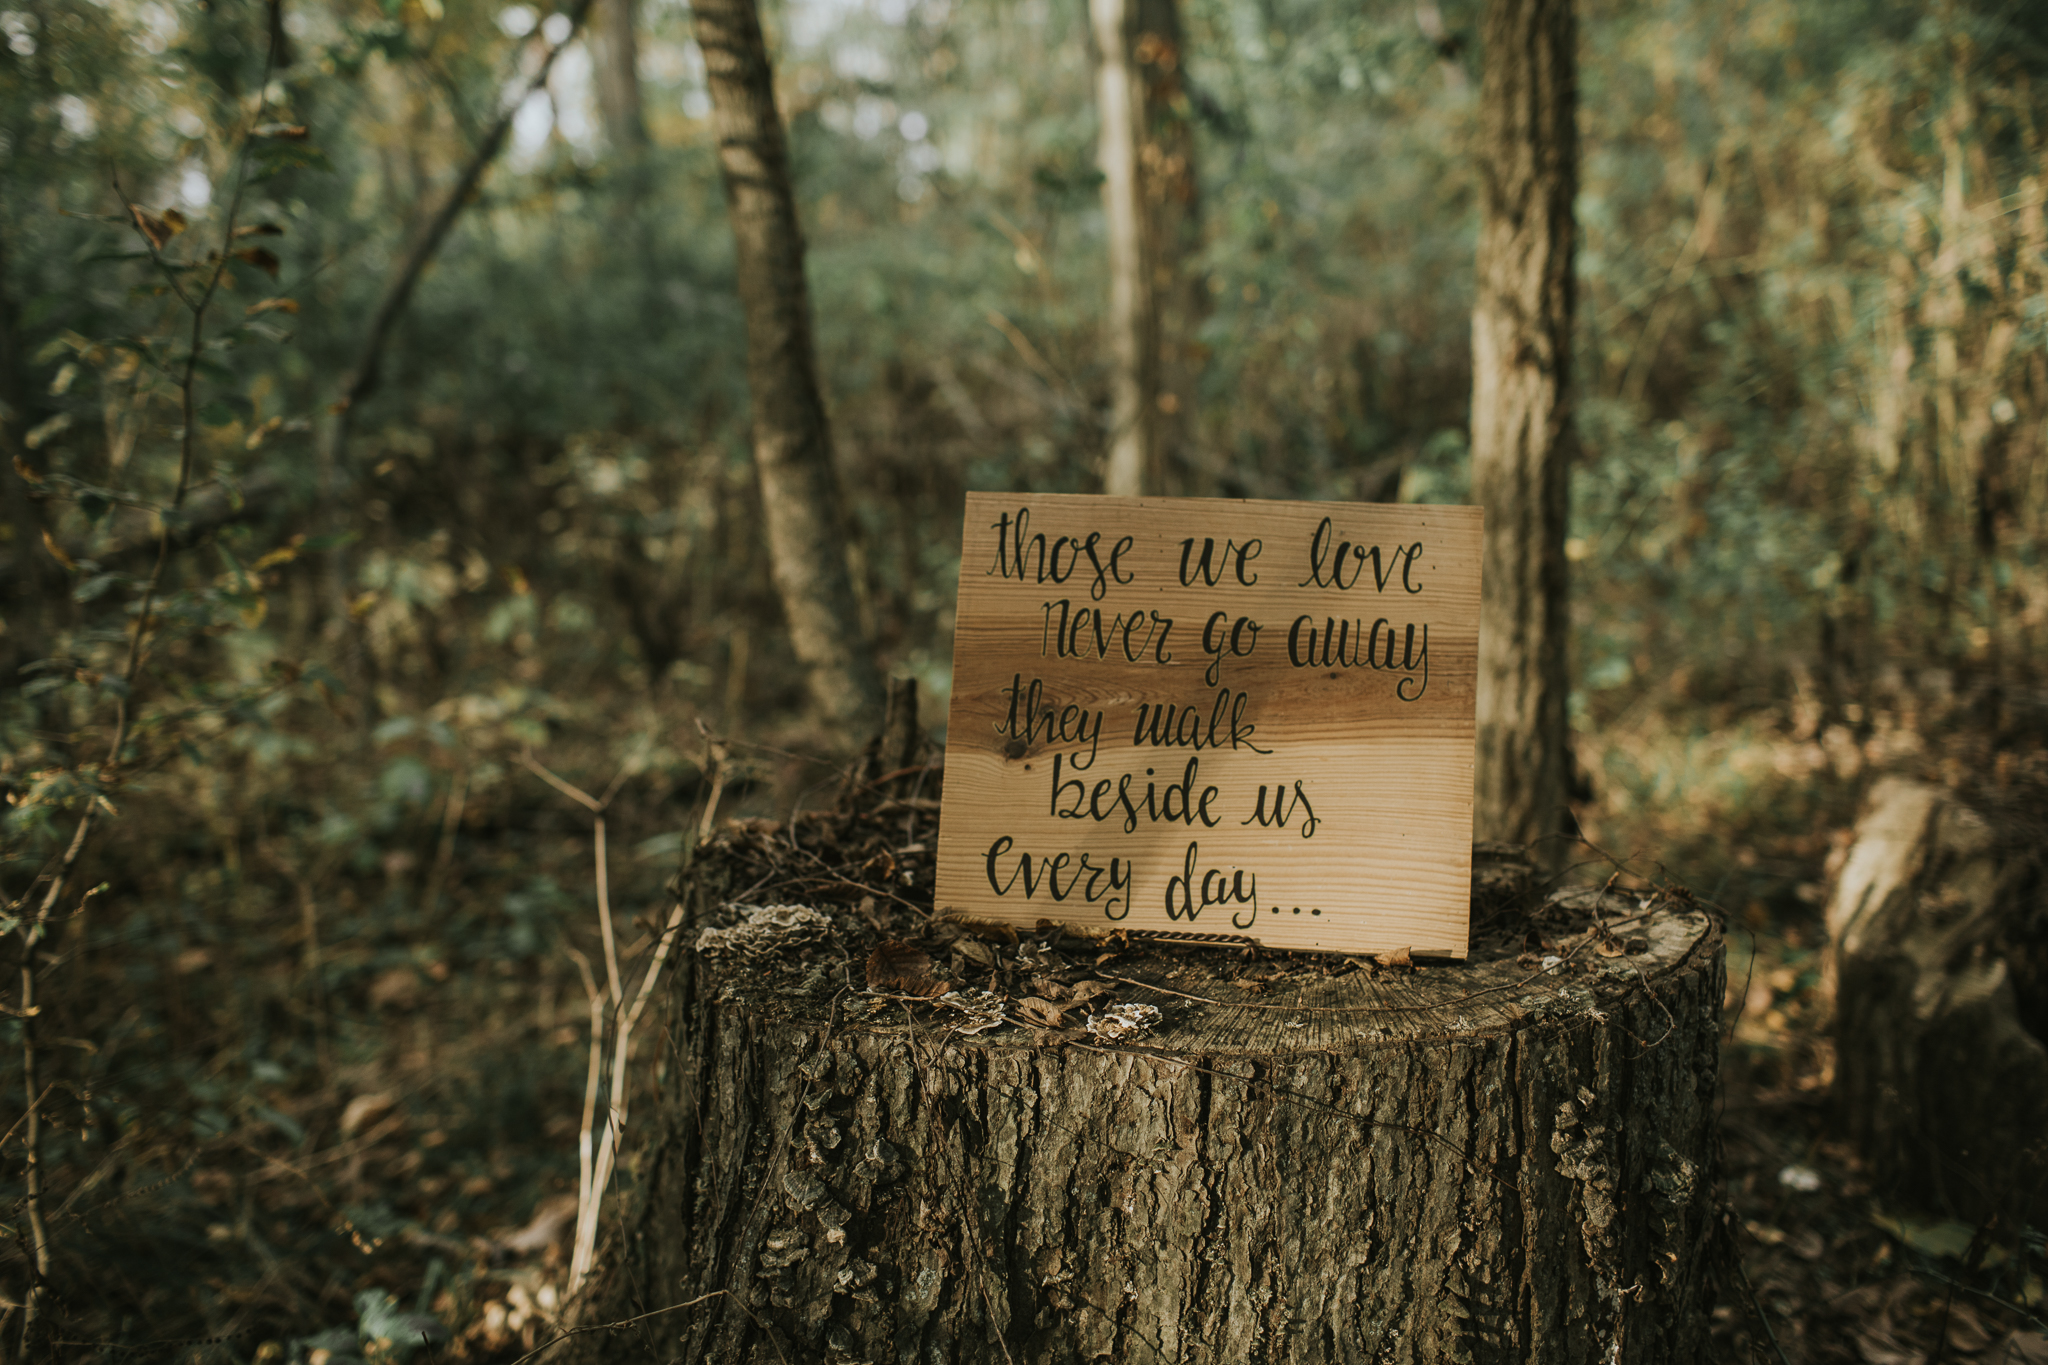 those we love
never go away
they walk
beside us
every day...